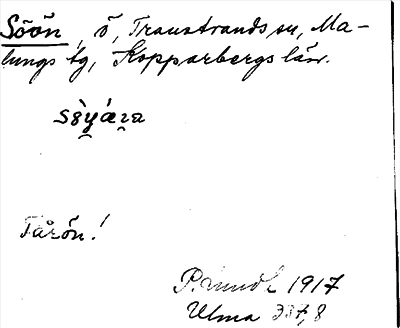 Söön, ö, Transtrands sn, Ma-
lungs tg, Kopparbergs län.
Tårön!
1917
Ulma 337,8